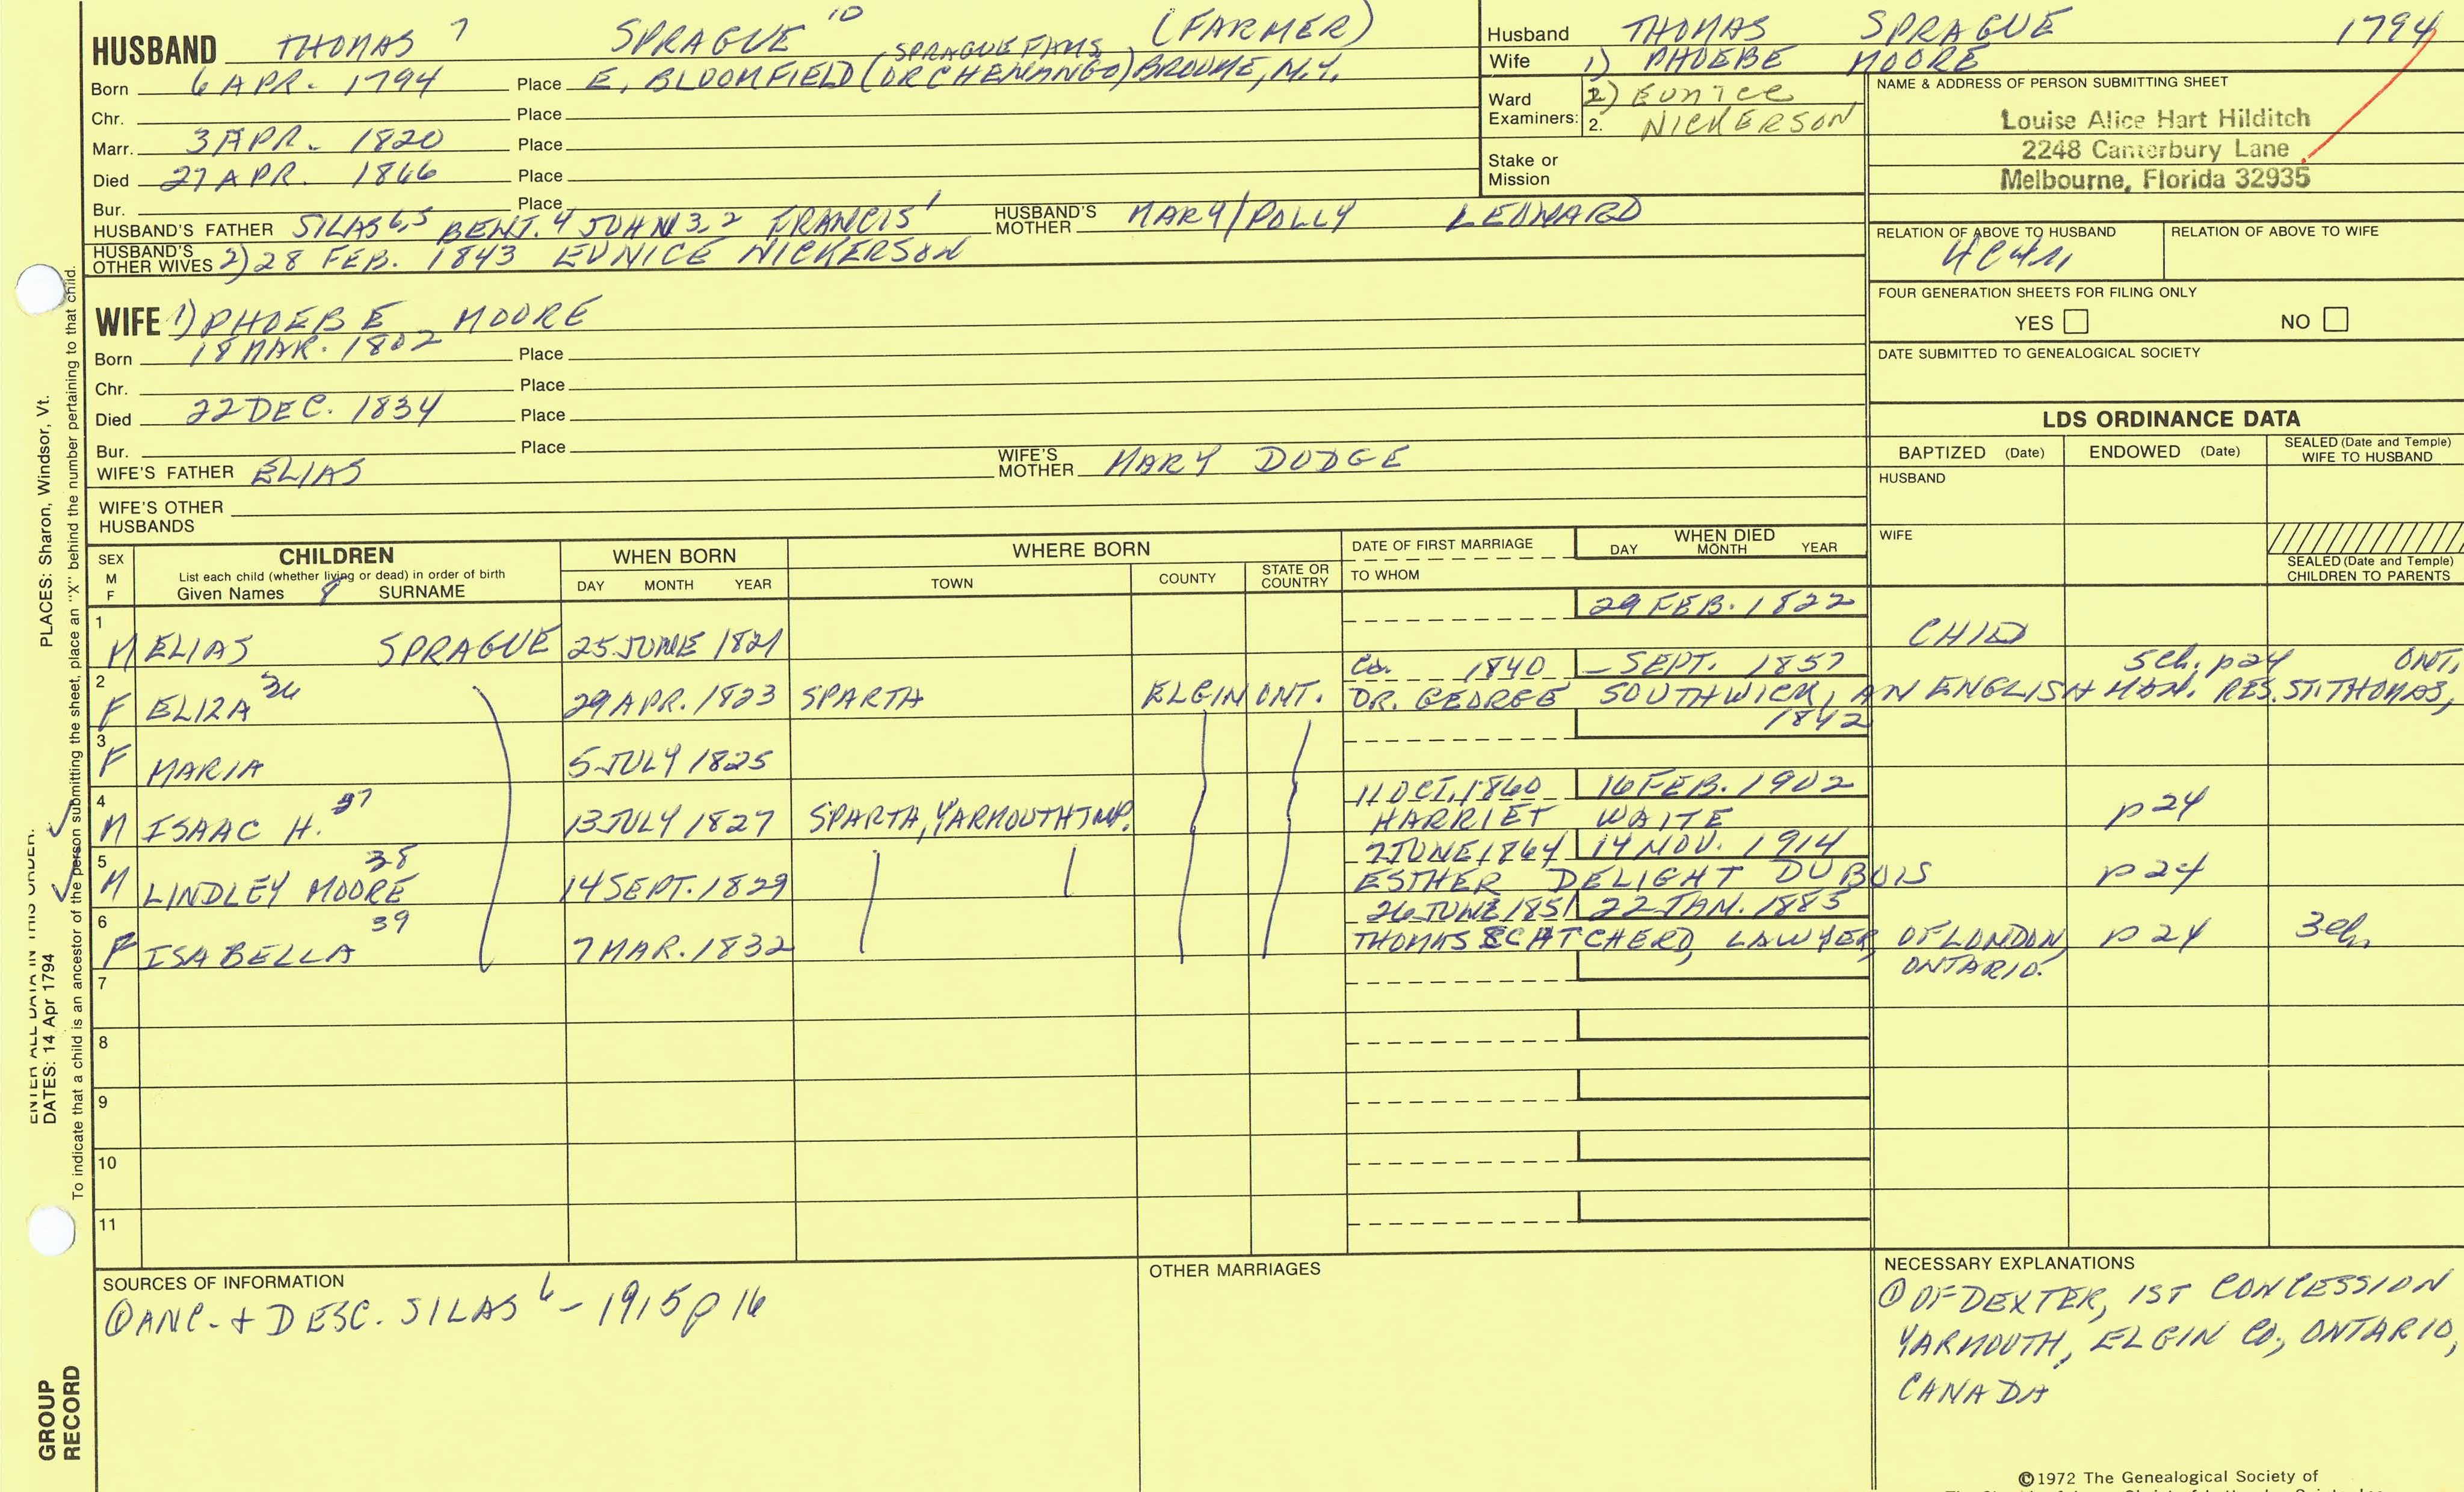 HUSBAND THOMAS 7 SPRAGUE 10 (FARMER)
SPRAGUE FAMS
Born 6 APR. 1794 Place E. BLOOMFIELD (OR CHENANGO) BROOME, N.Y.
Chr. Place
Marr. 3 APR. 1820 Place
Died 27 APR. 1866 Place
Bur. Place
HUSBAND'S FATHER SILAS 6,5 BENJ. 4 JOHN 3,2 FRANCIS 1 HUSBAND'S MOTHER MARY/POLLY LEONARD
HUSBAND'S OTHER WIVES 2) 28 FEB. 1843 EUNICE NICKERSON
Husband THOMAS SPRAGUE 1794
Wife 1) PHOEBE MOORE
Ward Examiners: 2) EUNICE
2. NICKERSON
Stake or Mission
NAME & ADDRESS OF PERSON SUBMITTING SHEET
Louise Alice Hart Hilditch
2248 Canterbury Lane
Melbourne, Florida 32935
RELATION OF ABOVE TO HUSBAND RELATION OF ABOVE TO WIFE
FOUR GENERATION SHEETS FOR FILING ONLY
YES NO
DATE SUBMITTED TO GENEALOGICAL SOCIETY
WIFE 1) PHOEBE MOORE
Born 18 MAR. 1802 Place
Chr. Place
Died 22 DEC. 1834 Place
Bur. Place
WIFE'S FATHER ELIAS WIFE'S MOTHER MARY DODGE
WIFE'S OTHER HUSBANDS
LDS ORDINANCE DATA
BAPTIZED (Date) ENDOWED (Date) SEALED (Date and Temple) WIFE TO HUSBAND
HUSBAND
WIFE
SEALED (Date and Temple) CHILDREN TO PARENTS
SEX M F
CHILDREN
List each child (whether living or dead) in order of birth
Given Names SURNAME
WHEN BORN
DAY MONTH YEAR
WHERE BORN
TOWN COUNTY STATE OR COUNTRY
DATE OF FIRST MARRIAGE
TO WHOM
WHEN DIED
DAY MONTH YEAR
1 29 FEB. 1822
M ELIAS SPRAGUE 25 JUNE 1821 CHILD
2 Ca. 1840 – SEPT. 1857 5ch. p24 ONT.
F ELIZA 36 29 APR. 1823 SPARTA ELGIN ONT. DR. GEORGE SOUTHWICK, AN ENGLISH MAN. RES. ST. THOMAS,
3 1842
F MARIA 5 JULY 1825
4 11 OCT. 1860 16 FEB. 1902
M ISAAC H. 37 13 JULY 1827 SPARTA, YARMOUTH TWP. HARRIET WAITE p24
5 7 JUNE 1864 14 NOV. 1914
M LINDLEY MOORE 38 14 SEPT. 1829 ESTHER DELIGHT DUBOIS p24
6 26 JUNE 1851 22 JAN. 1883
F ISABELLA 39 7 MAR. 1832 THOMAS SCATCHERD, LAWYER OF LONDON, p24 3ch.
ONTARIO.
7
8
9
10
11
SOURCES OF INFORMATION
① ANC. + DESC. SILAS 6 – 1915 p16
OTHER MARRIAGES
NECESSARY EXPLANATIONS
① OF DEXTER, 1ST CONCESSION
YARMOUTH, ELGIN CO., ONTARIO,
CANADA
©1972 The Genealogical Society of
PLACES: Sharon, Windsor, Vt.
ENTER ALL DATA IN THIS ORDER:
DATES: 14 Apr 1794
To indicate that a child is an ancestor of the person submitting the sheet, place an "X" behind the number pertaining to that child.
GROUP
RECORD